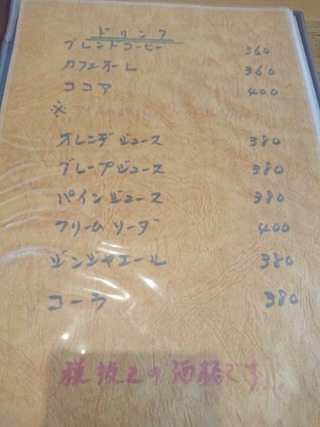 ドリンク
ブレンドコーヒー 360
カフェオーレ 360
ココア 400
※
オレンヂジュース 380
グレープジュース 380
パインジュース 380
クリームソーダ 400
ジンジャエール 380
コーラ 380
の価格です